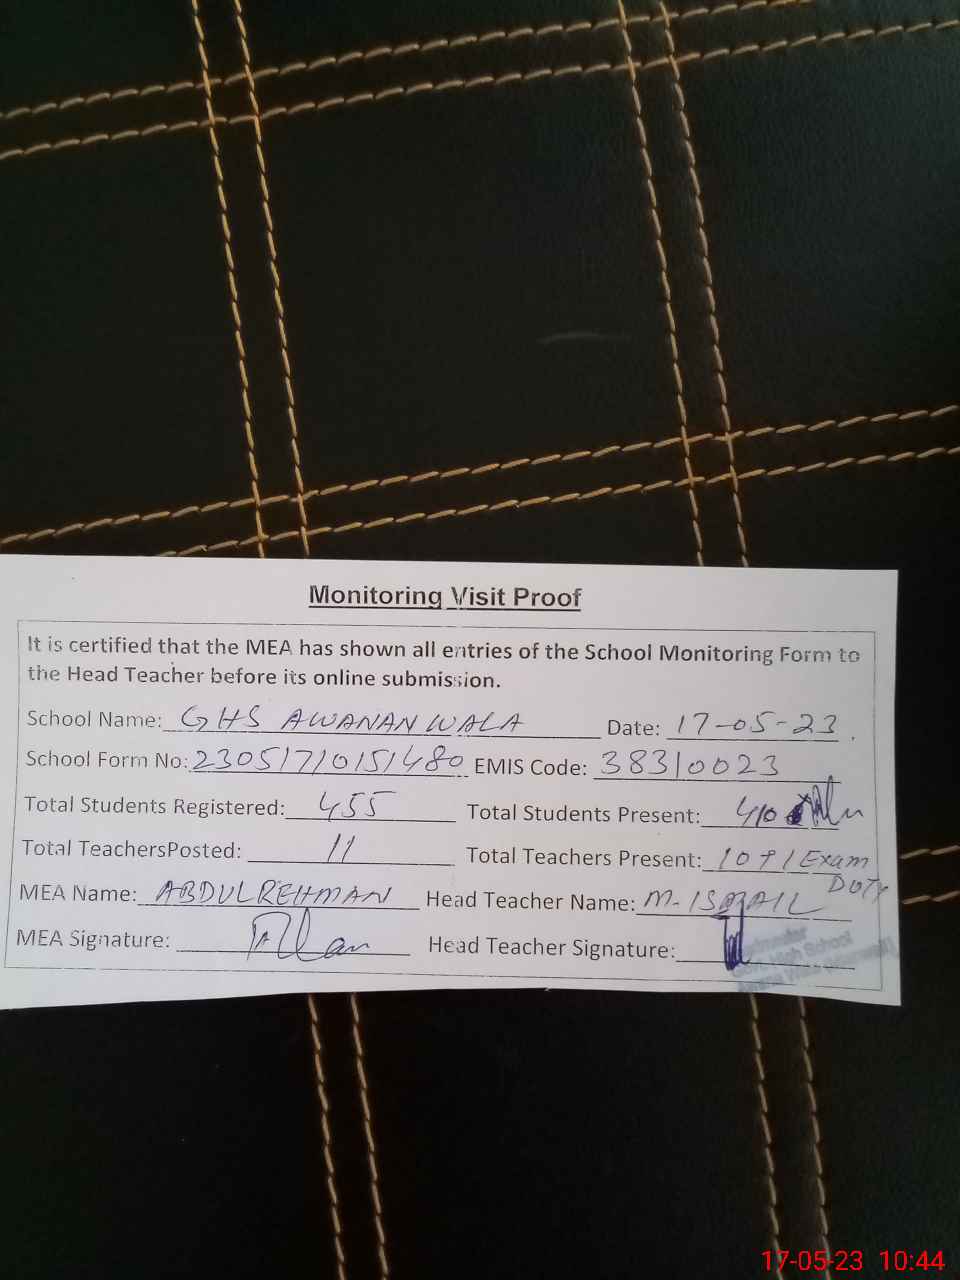 Monitoring Visit Proof
It is certified that the MEA has shown all entries of the School Monitoring Form to
the Head Teacher before its online submission.
School Name: GHS AWANAN WALA Date: 17-05-23
School Form No: 23051710151480 EMIS Code: 38310023
Total Students Registered: 455 Total Students Present: 410
Total TeachersPosted: 11 Total Teachers Present: 10+1 Exam
DUTY
MEA Name: ABDUL REHMAN Head Teacher Name: M. ISMAIL
MEA Signature: Head Teacher Signature:
Headmaster
Govt. High School
17-05-23 10:44